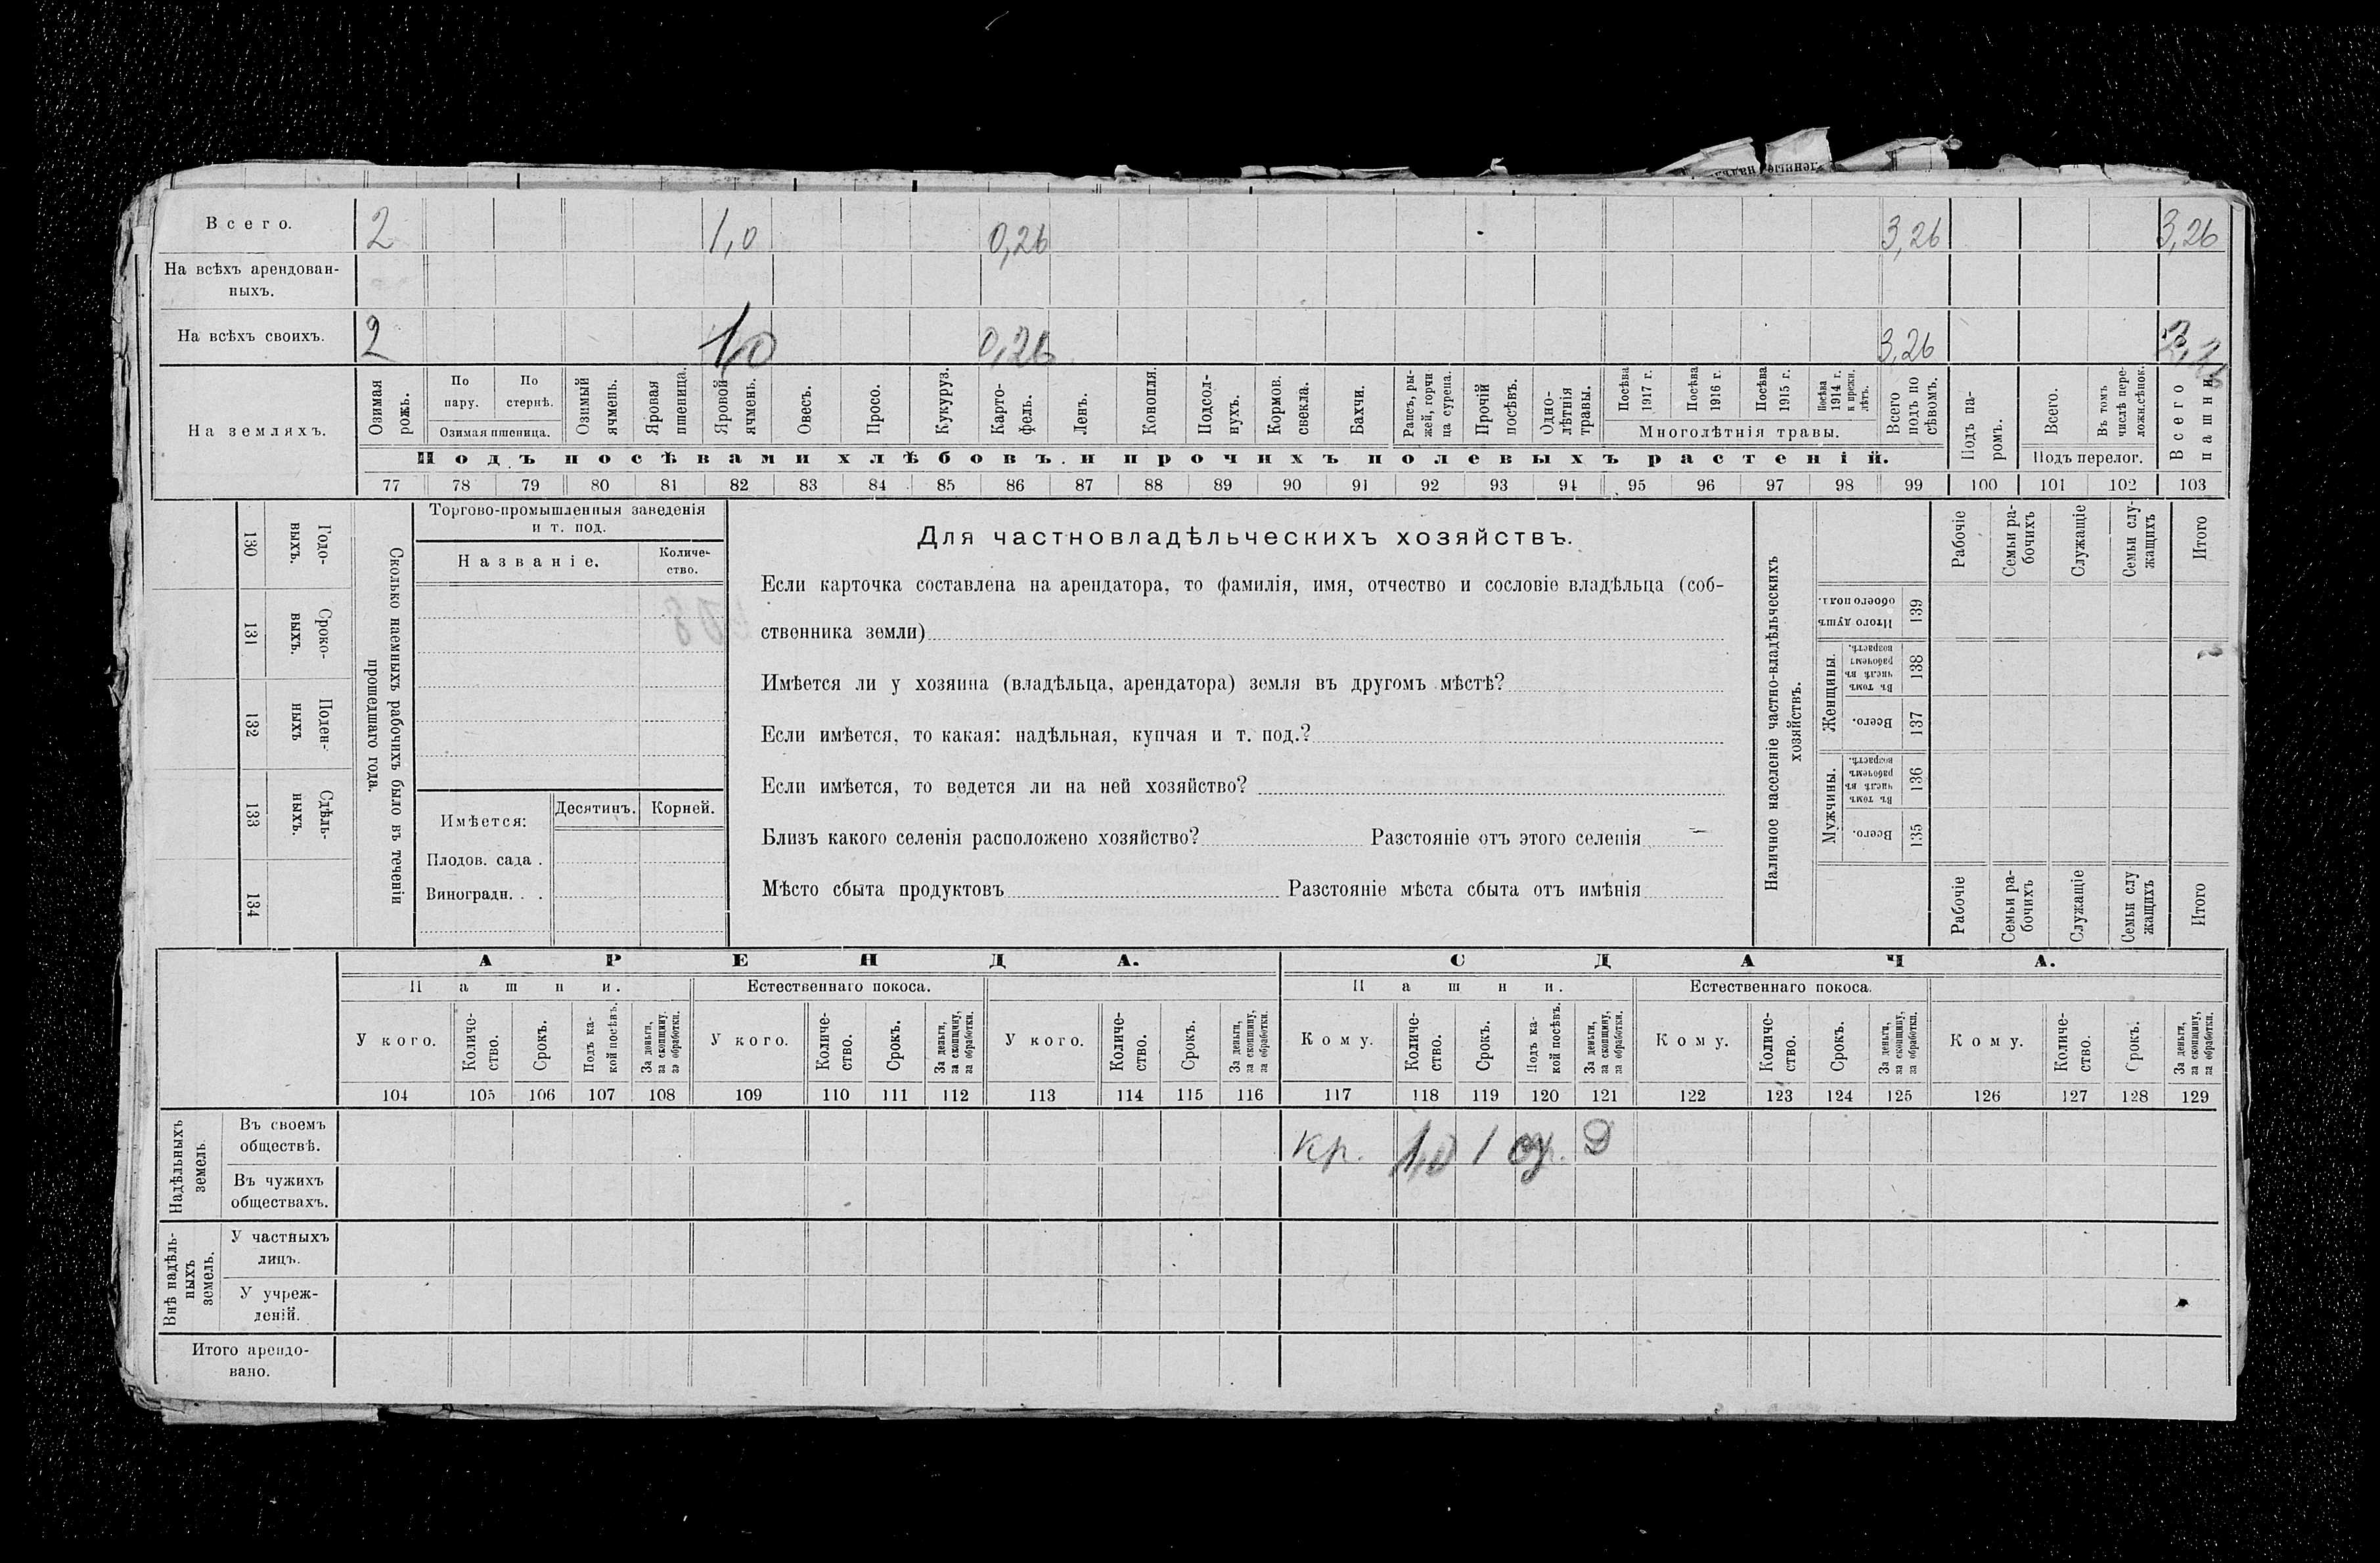 Всего. 2 1,0 0,26 3,26 3,26
На всѣхъ арендован-
ныхъ.
На всѣхъ своихъ. 2 1,0 0,26 3,26
На земляхъ.
Озимая рожь.
По пару.
По стернѣ.
Озимая пшеница.
Озимый ячмень.
Яровая пшеница.
Яровой ячмень.
Овесъ.
Просо.
Кукуруз.
Карто-
фель.
Ленъ.
Конопля.
Подсол-
нухъ.
Кормов. свекла.
Бахчи.
Рапсъ, ры-
жей, горчи
ца сурепа.
Прочій посѣвъ.
Одно-
лѣтнія травы.
Посѣва 1917 г.
Посѣва 1916 г.
Посѣва 1915 г.
Посѣва 1914 г. и прежн. лѣтъ.
Многолѣтнія травы.
Всего подъ по
сѣвомъ.
Подъ па-
ромъ.
Всего.
Въ томъ числѣ пере-
ложн.сѣнок.
Подъ перелог.
Всего пашни
Подъ посѣвами хлѣбовъ и прочихъ полевыхъ растеній.
77 78 79 80 81 82 83 84 85 86 87 88 89 90 91 92 93 94 95 96 97 98 99 100 101 102 103
Сколько наемныхъ рабочихъ было въ теченіи
прошедшаго года.
Годо-
выхъ.
130
Сроко-
выхъ.
131
Поден-
ныхъ
132
Сдѣль-
ныхъ.
133
134
Торгово-промышленныя заведенія
и т. под.
Названіе.
Количе-
ство.
Имѣется:
Десятинъ. Корней.
Плодов. сада .
Виноградн. . .
Для частновладѣльческихъ хозяйствъ.
Если карточка составлена на арендатора, то фамилія, имя, отчество и сословіе владѣльца (соб-
ственника земли)
Имѣется ли у хозяина (владѣльца, арендатора) земля въ другомъ мѣстѣ?
Если имѣется, то какая: надѣльная, купчая и т. под.?
Если имѣется, то ведется ли на ней хозяйство?
Близъ какого селенія расположено хозяйство? Разстояніе отъ этого селенія
Мѣсто сбыта продуктовъ Разстояніе мѣста сбыта отъ имѣнія
Наличное населеніе частно-владѣльческихъ
хозяйствъ.
Рабочіе
Семьи ра-
бочихъ
Служащіе
Семьи слу-
жащихъ
Итого
Итого душъ
обоего пола.
139
Женщины.
Въ томъ числѣ въ рабочемъ возрастѣ.
138
Всего.
137
Мужчины.
Въ томъ числѣ въ рабочемъ возрастѣ.
136
Всего.
135
Рабочіе
Семьи ра-
бочихъ
Служащіе
Семьи слу
жащихъ
Итого
АРЕНДА. СДАЧА.
Пашни. Естественнаго покоса. Пашни. Естественнаго покоса.
У кого.
Количе-
ство.
Срокъ.
Подъ ка-
кой посѣвъ.
За деньги, за скопщину. за обработки.
У кого.
Количе-
ство.
Срокъ.
За деньги, за скопщину, за обработки.
У кого.
Количе-
ство.
Срокъ.
За деньги, за скопщину, за обработки.
Кому.
Количе-
ство.
Срокъ.
Подъ ка-
кой посѣвъ.
За деньги, за скопщину, за обработки.
Кому.
Количе-
ство.
Срокъ.
За деньги, за скопщину, за обработки.
Кому.
Количе-
ство.
Срокъ.
За деньги, за скопщину, за обработки.
104 105 106 107 108 109 110 111 112 113 114 115 116 117 118 119 120 121 122 123 124 125 126 127 128 129
Надѣльныхъ
земель
Въ своемъ
обществѣ.
кр. 1,0 1 Д
Въ чужихъ
обществахъ.
Внѣ надѣль-
ныхъ
земель.
У частныхъ
лицъ.
У учреж-
деній.
Итого арендо-
вано.